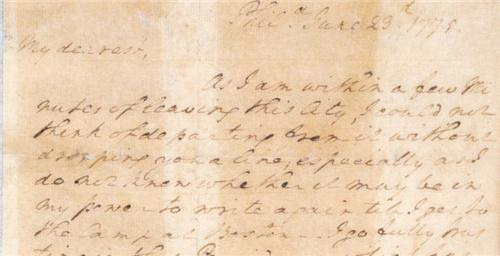 Phila. June 23d. 1775.
My dearest,
As I am within a few Mi
nutes of leaving this City, I could not
think of departing from it without
dropping you a line; especially as I
do not know whether it may be in
my power to write again till I get to
the Camp at Boston — I go fully trus
ting in that